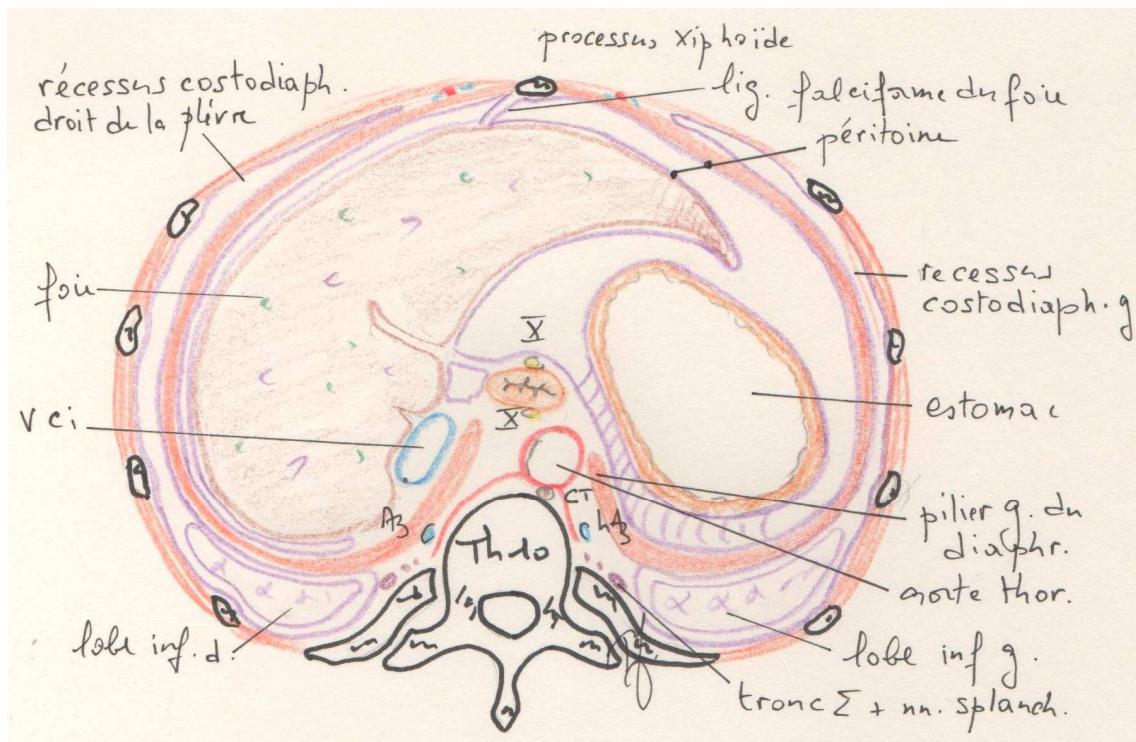 processus xiphoïde
récessus costodiaph.
droit de la plèvre
lig. falciforme du foie
péritoine
foie
recessus
costodiaph. g
X
estomac
v ci
X
CT
Az
hAz
Th10
pilier g. du
diaphr.
aorte thor.
lobe inf. d.
lobe inf g.
tronc Σ + nn. splanch.